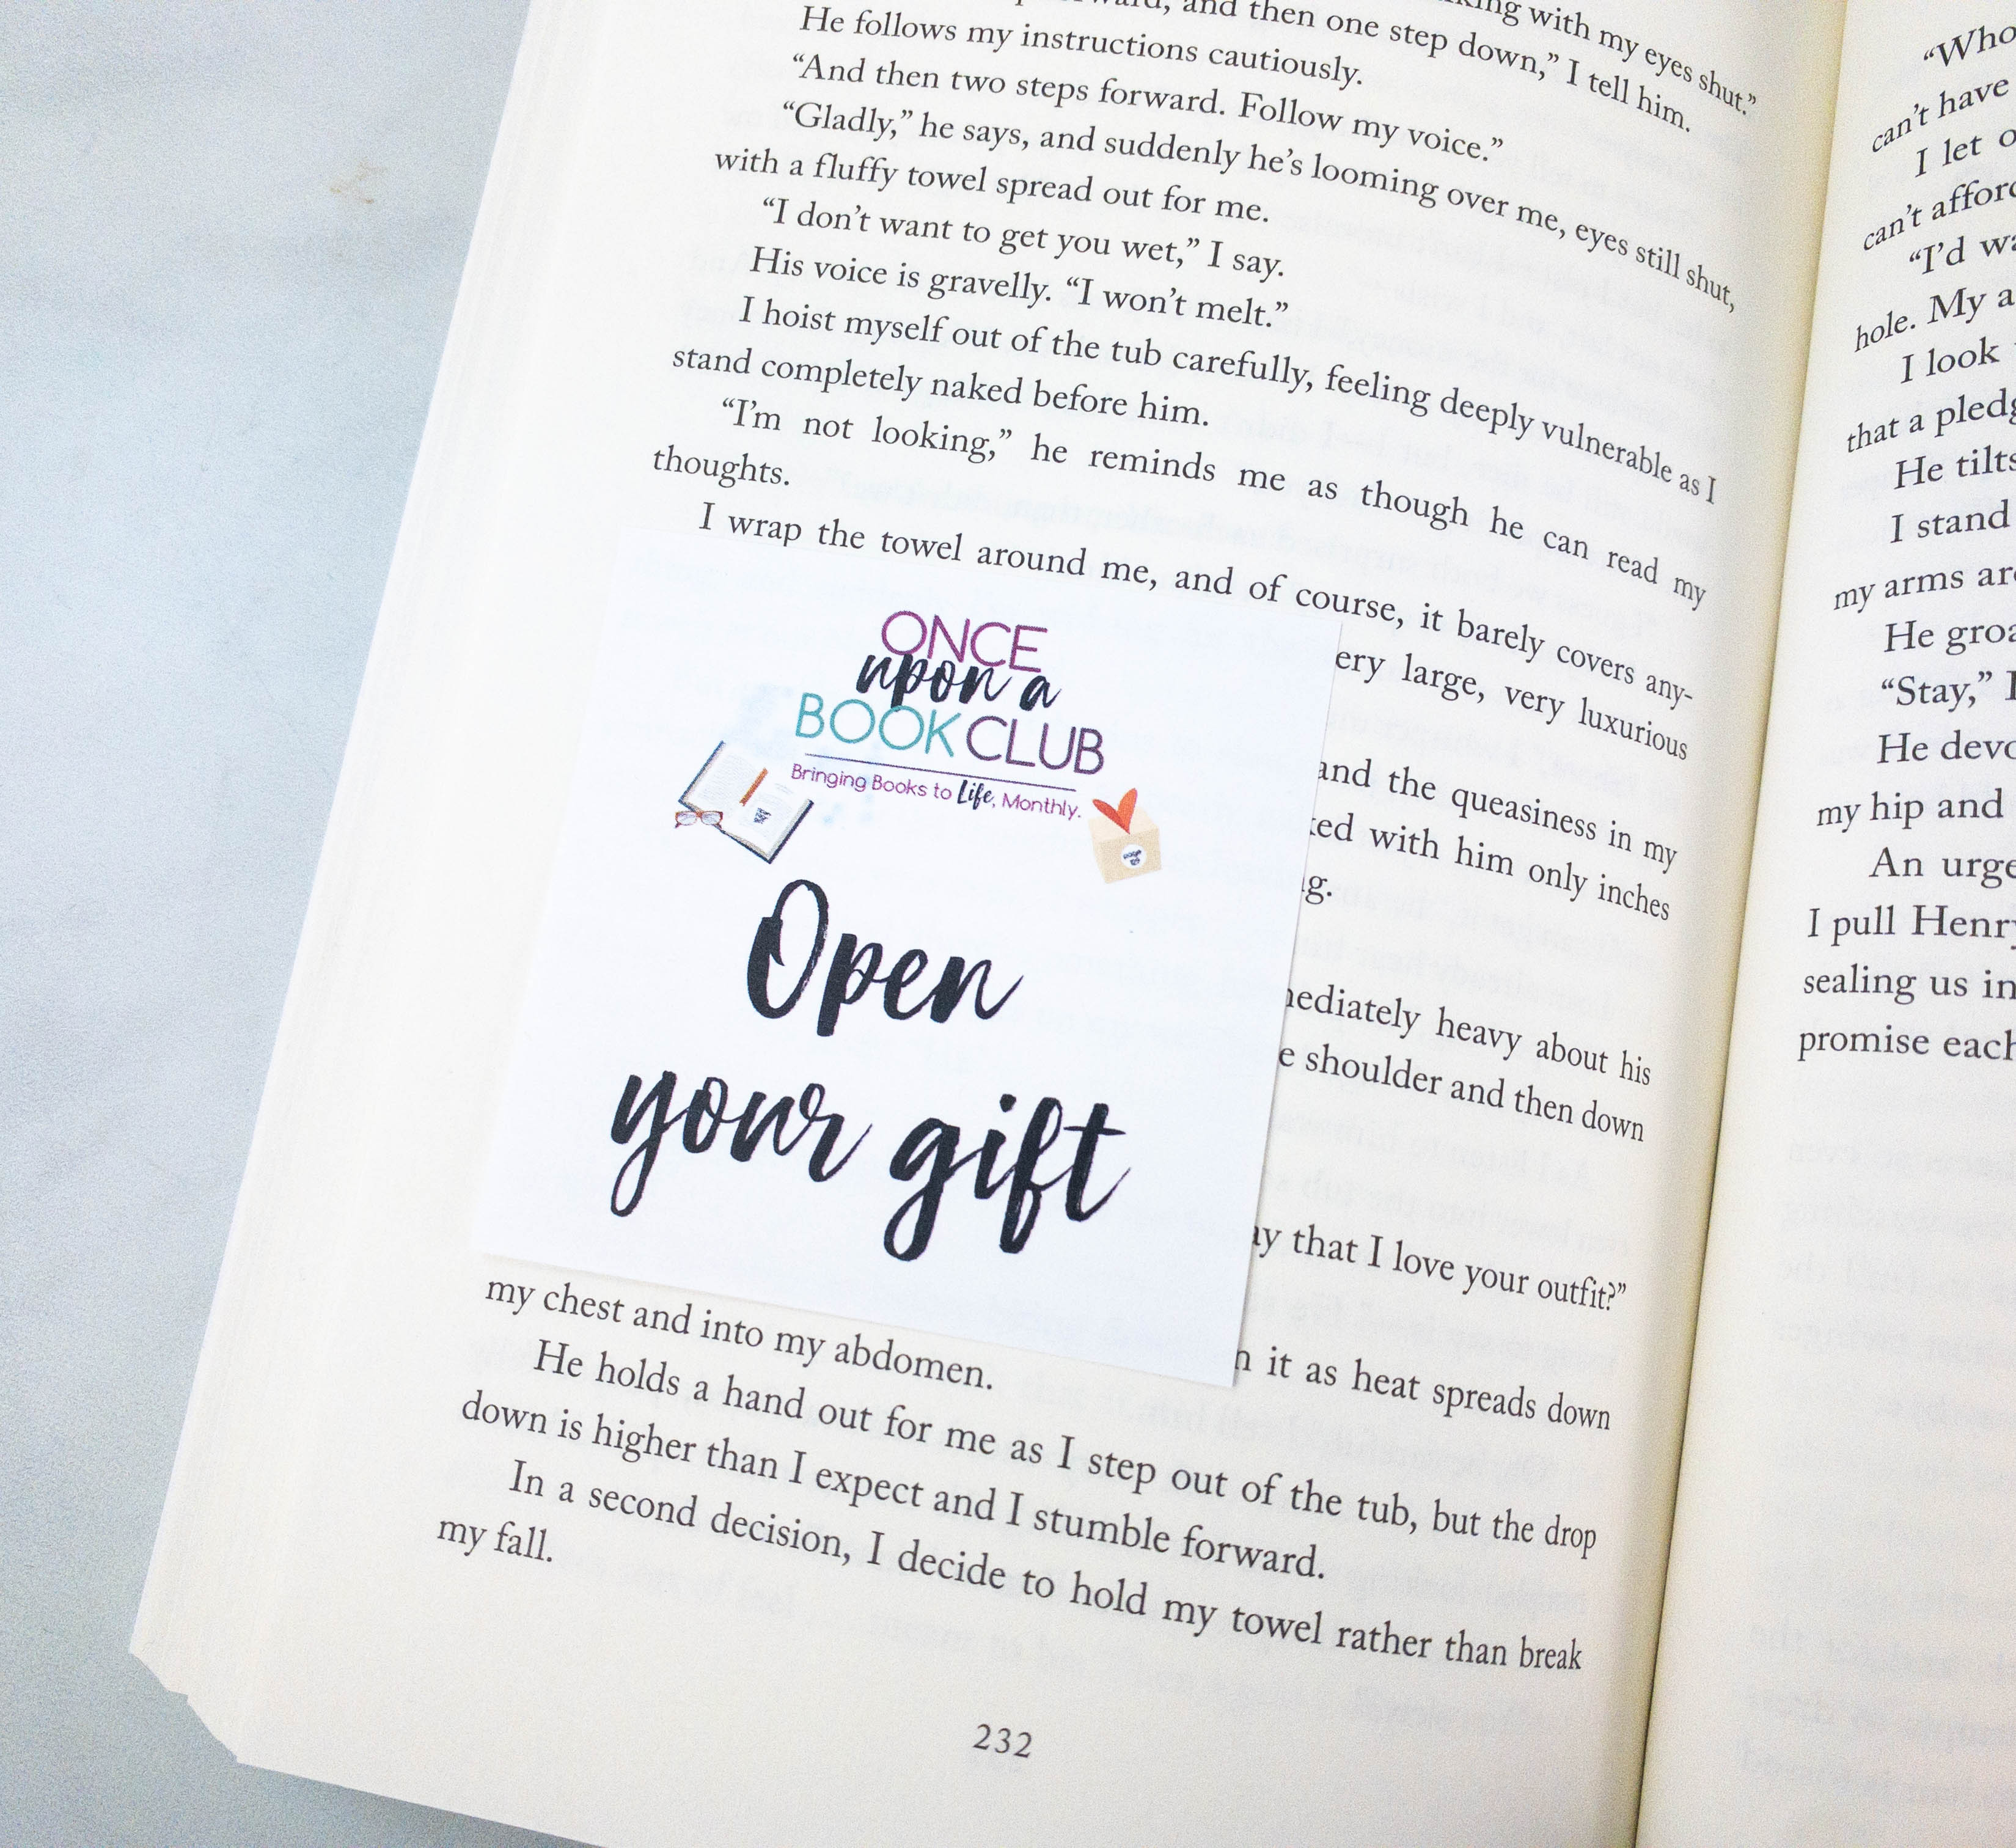 king with my eyes shut."
and then one step down," I tell him.
He follows my instructions cautiously.
"And then two steps forward. Follow my voice."
"Gladly," he says, and suddenly he's looming over me, eyes still shut,
with a fluffy towel spread out for me.
"I don't want to get you wet," I say.
His voice is gravelly. "I won't melt."
I hoist myself out of the tub carefully, feeling deeply vulnerable as I
stand completely naked before him.
"I'm not looking," he reminds me as though he can read my
thoughts.
I wrap the towel around me, and of course, it barely covers any-
ery large, very luxurious
and the queasiness in my
ked with him only inches
g.
mediately heavy about his
e shoulder and then down
ay that I love your outfit?"
n it as heat spreads down
my chest and into my abdomen.
He holds a hand out for me as I step out of the tub, but the drop
down is higher than I expect and I stumble forward.
In a second decision, I decide to hold my towel rather than break
my fall.
232
ONCE
upon a
BOOK CLUB
Bringing Books to Life, Monthly.
Open
your gift
"Who
can't have
I let o
can't affor
"I'd wa
hole. My a
I look
that a pledg
He tilts
I stand
my arms are
He groa
"Stay," I
He devo
my hip and
An urge
I pull Henry
sealing us in
promise each